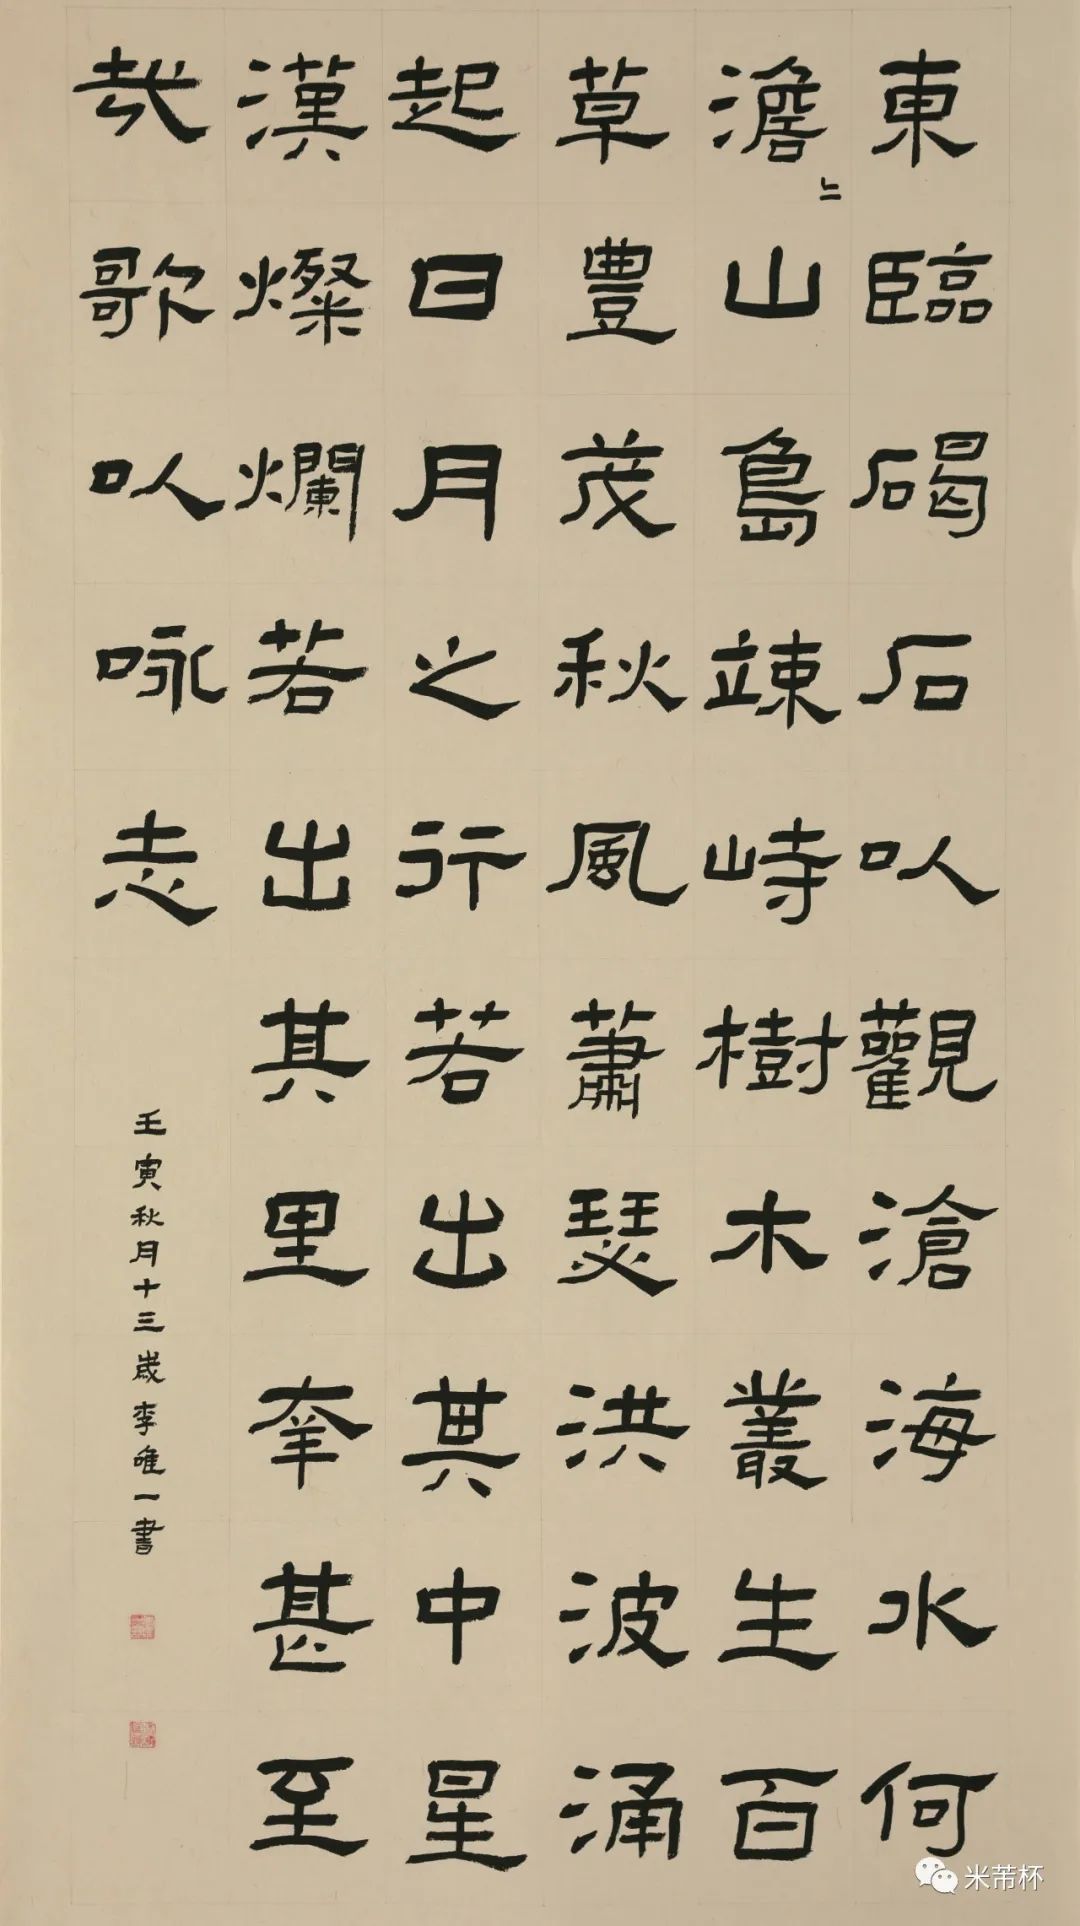 東臨碣石以觀滄海水何
澹〻山島竦峙樹木叢生百
草豊茂秋風蕭瑟洪波涌
起日月之行若出其中星
漢燦爛若出其里幸甚至
哉歌以咏志
壬寅秋月十三歲李唯一書
米芾杯